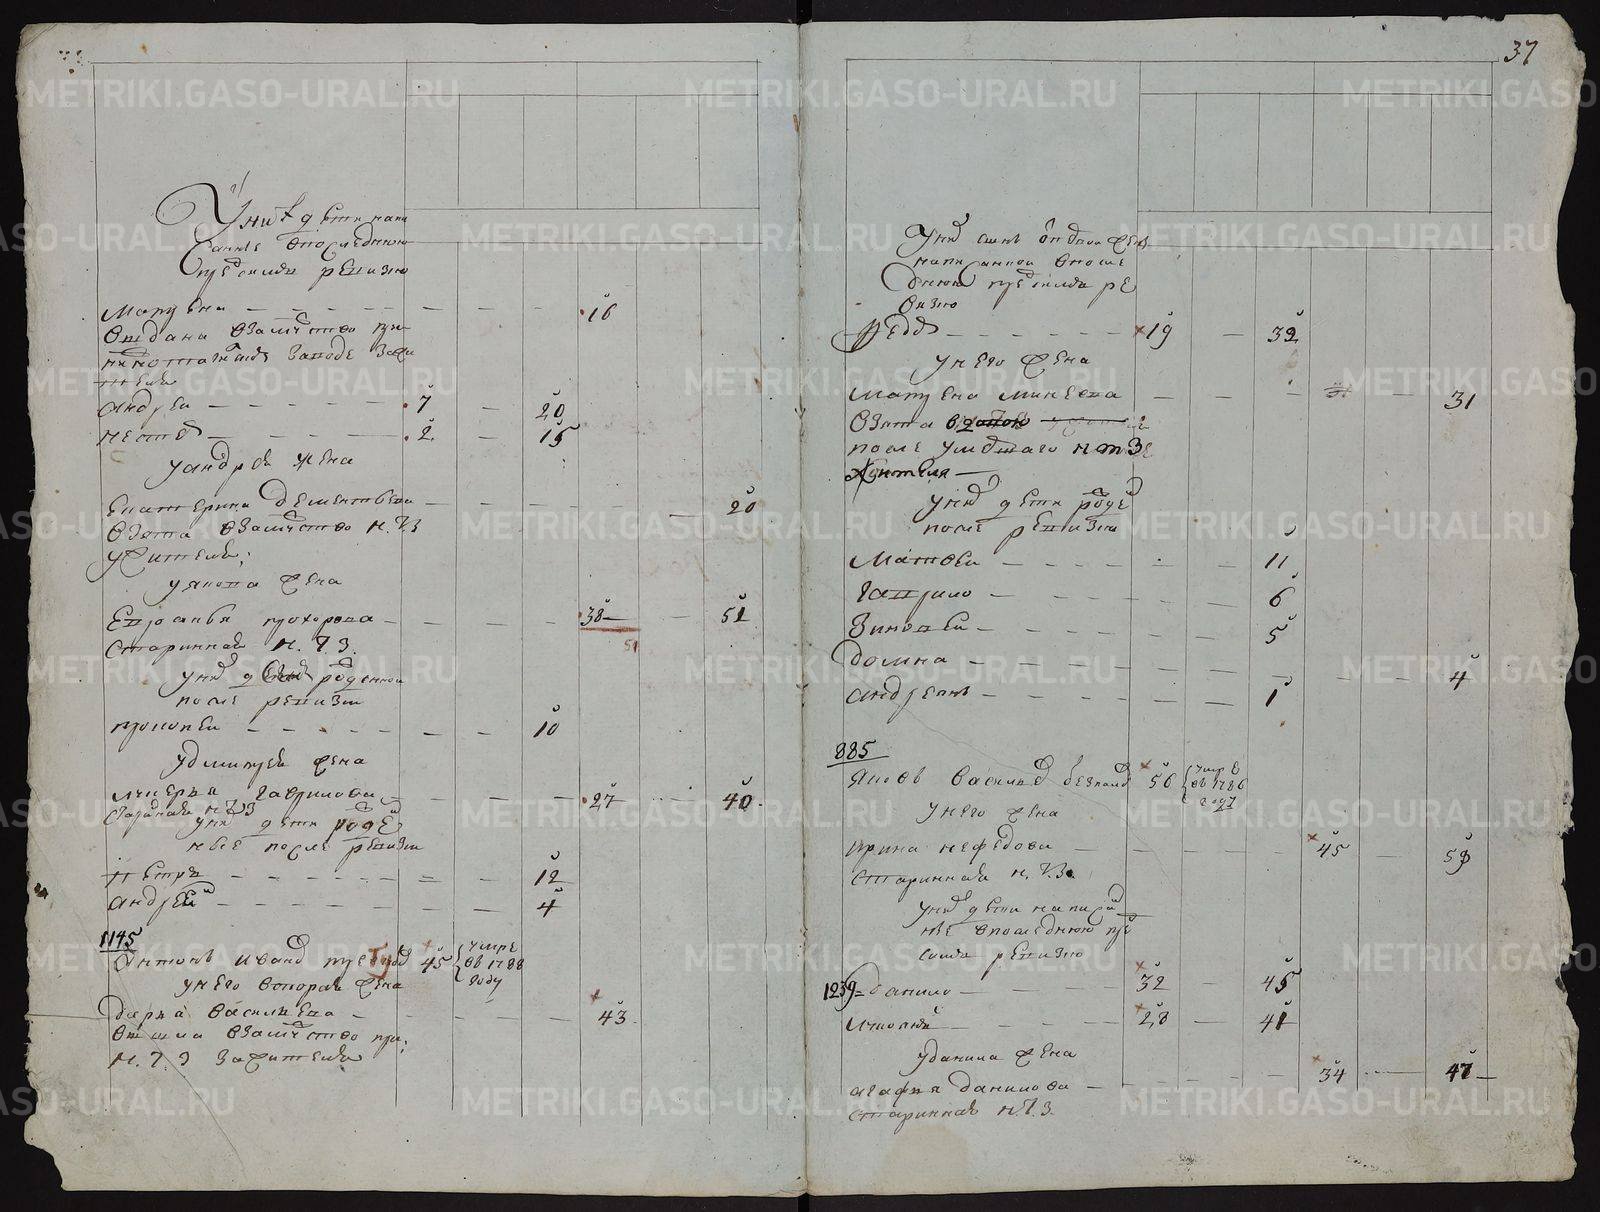 У них дети напи
санные в последнюю
пред сим ревизию
Марфа 16
отдана в замужство при
Н Т заводе за жи
теля
Андреи 7 20
Нестеръ 2 15
у андрея жена
Екатерина дементьева 20
взята в замужство Н.Т.З
у жителя
у якова жена
Евдокья прохорова 38 51
старинная Н.Т.З. 51
у них дети рожденной
после ревизии
прокопеи 10
у дмитрея жена
лукерья гаврилова 27 40
старинная Н Т З
у них дети рожде
ные после ревизии
петръ 12
андреи 4
1145
Антонъ Иванов 45 умре
въ 1788
году
у него вторая жена
дарья васильева 43
вышла в замужство при
Н.Т.З за жителя
37
написанной в после
днюю пред сим ре
визию
Федор 19 32
у него жена
Марфа Минеева 31
взята
после умершаго Н Т З
жителя
у них дети рожде
после ревизии
Матвеи 11
Гаврило 6
Зиновеи 5
домна 4
андреянъ 1
885
Яковъ Васильев 56 умре
въ 1786
году
у него жена
Ирина нефедова 45 59
старинная Н.Т.З.
у них дети написан
ные в последнюю пре
симъ ревизию
1239 данило 32 45
28 41
у данила жена
агафья данилова 34 47
старинная Н.Т.З.
METRIKI.GASO-URAL.RU